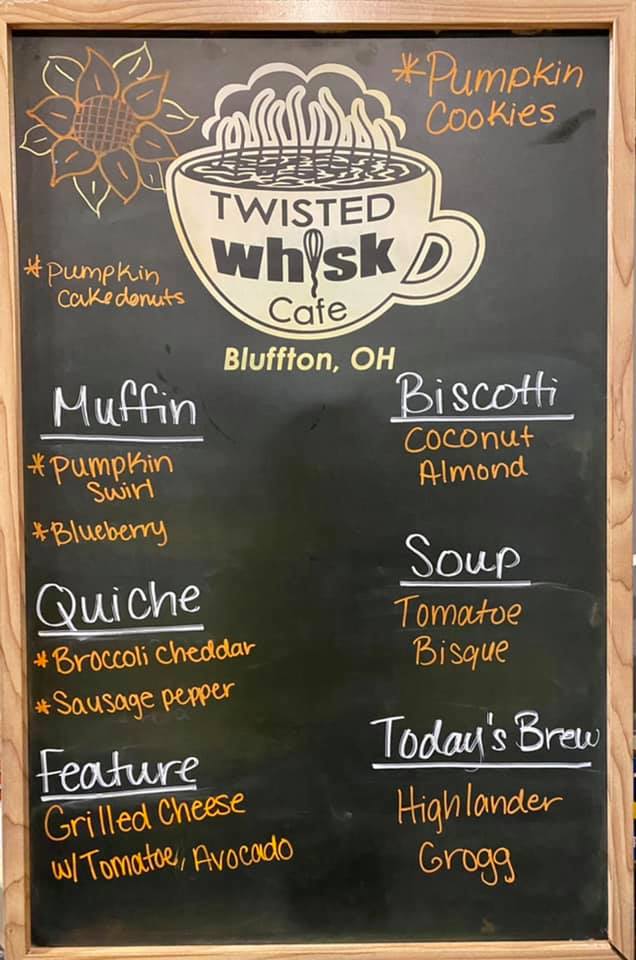 *Pumpkin
Cookies
TWISTED
whisk
Cafe
Bluffton, OH
*Pumpkin
Cakedonuts
Muffin
*Pumpkin
Swirl
*Blueberry
Quiche
*Broccoli Cheddar
*Sausage pepper
Feature
Grilled Cheese
w/Tomatoe, Avocado
Biscotti
Coconut
Almond
Soup
Tomatoe
Bisque
Today's Brew
Highlander
Grogg